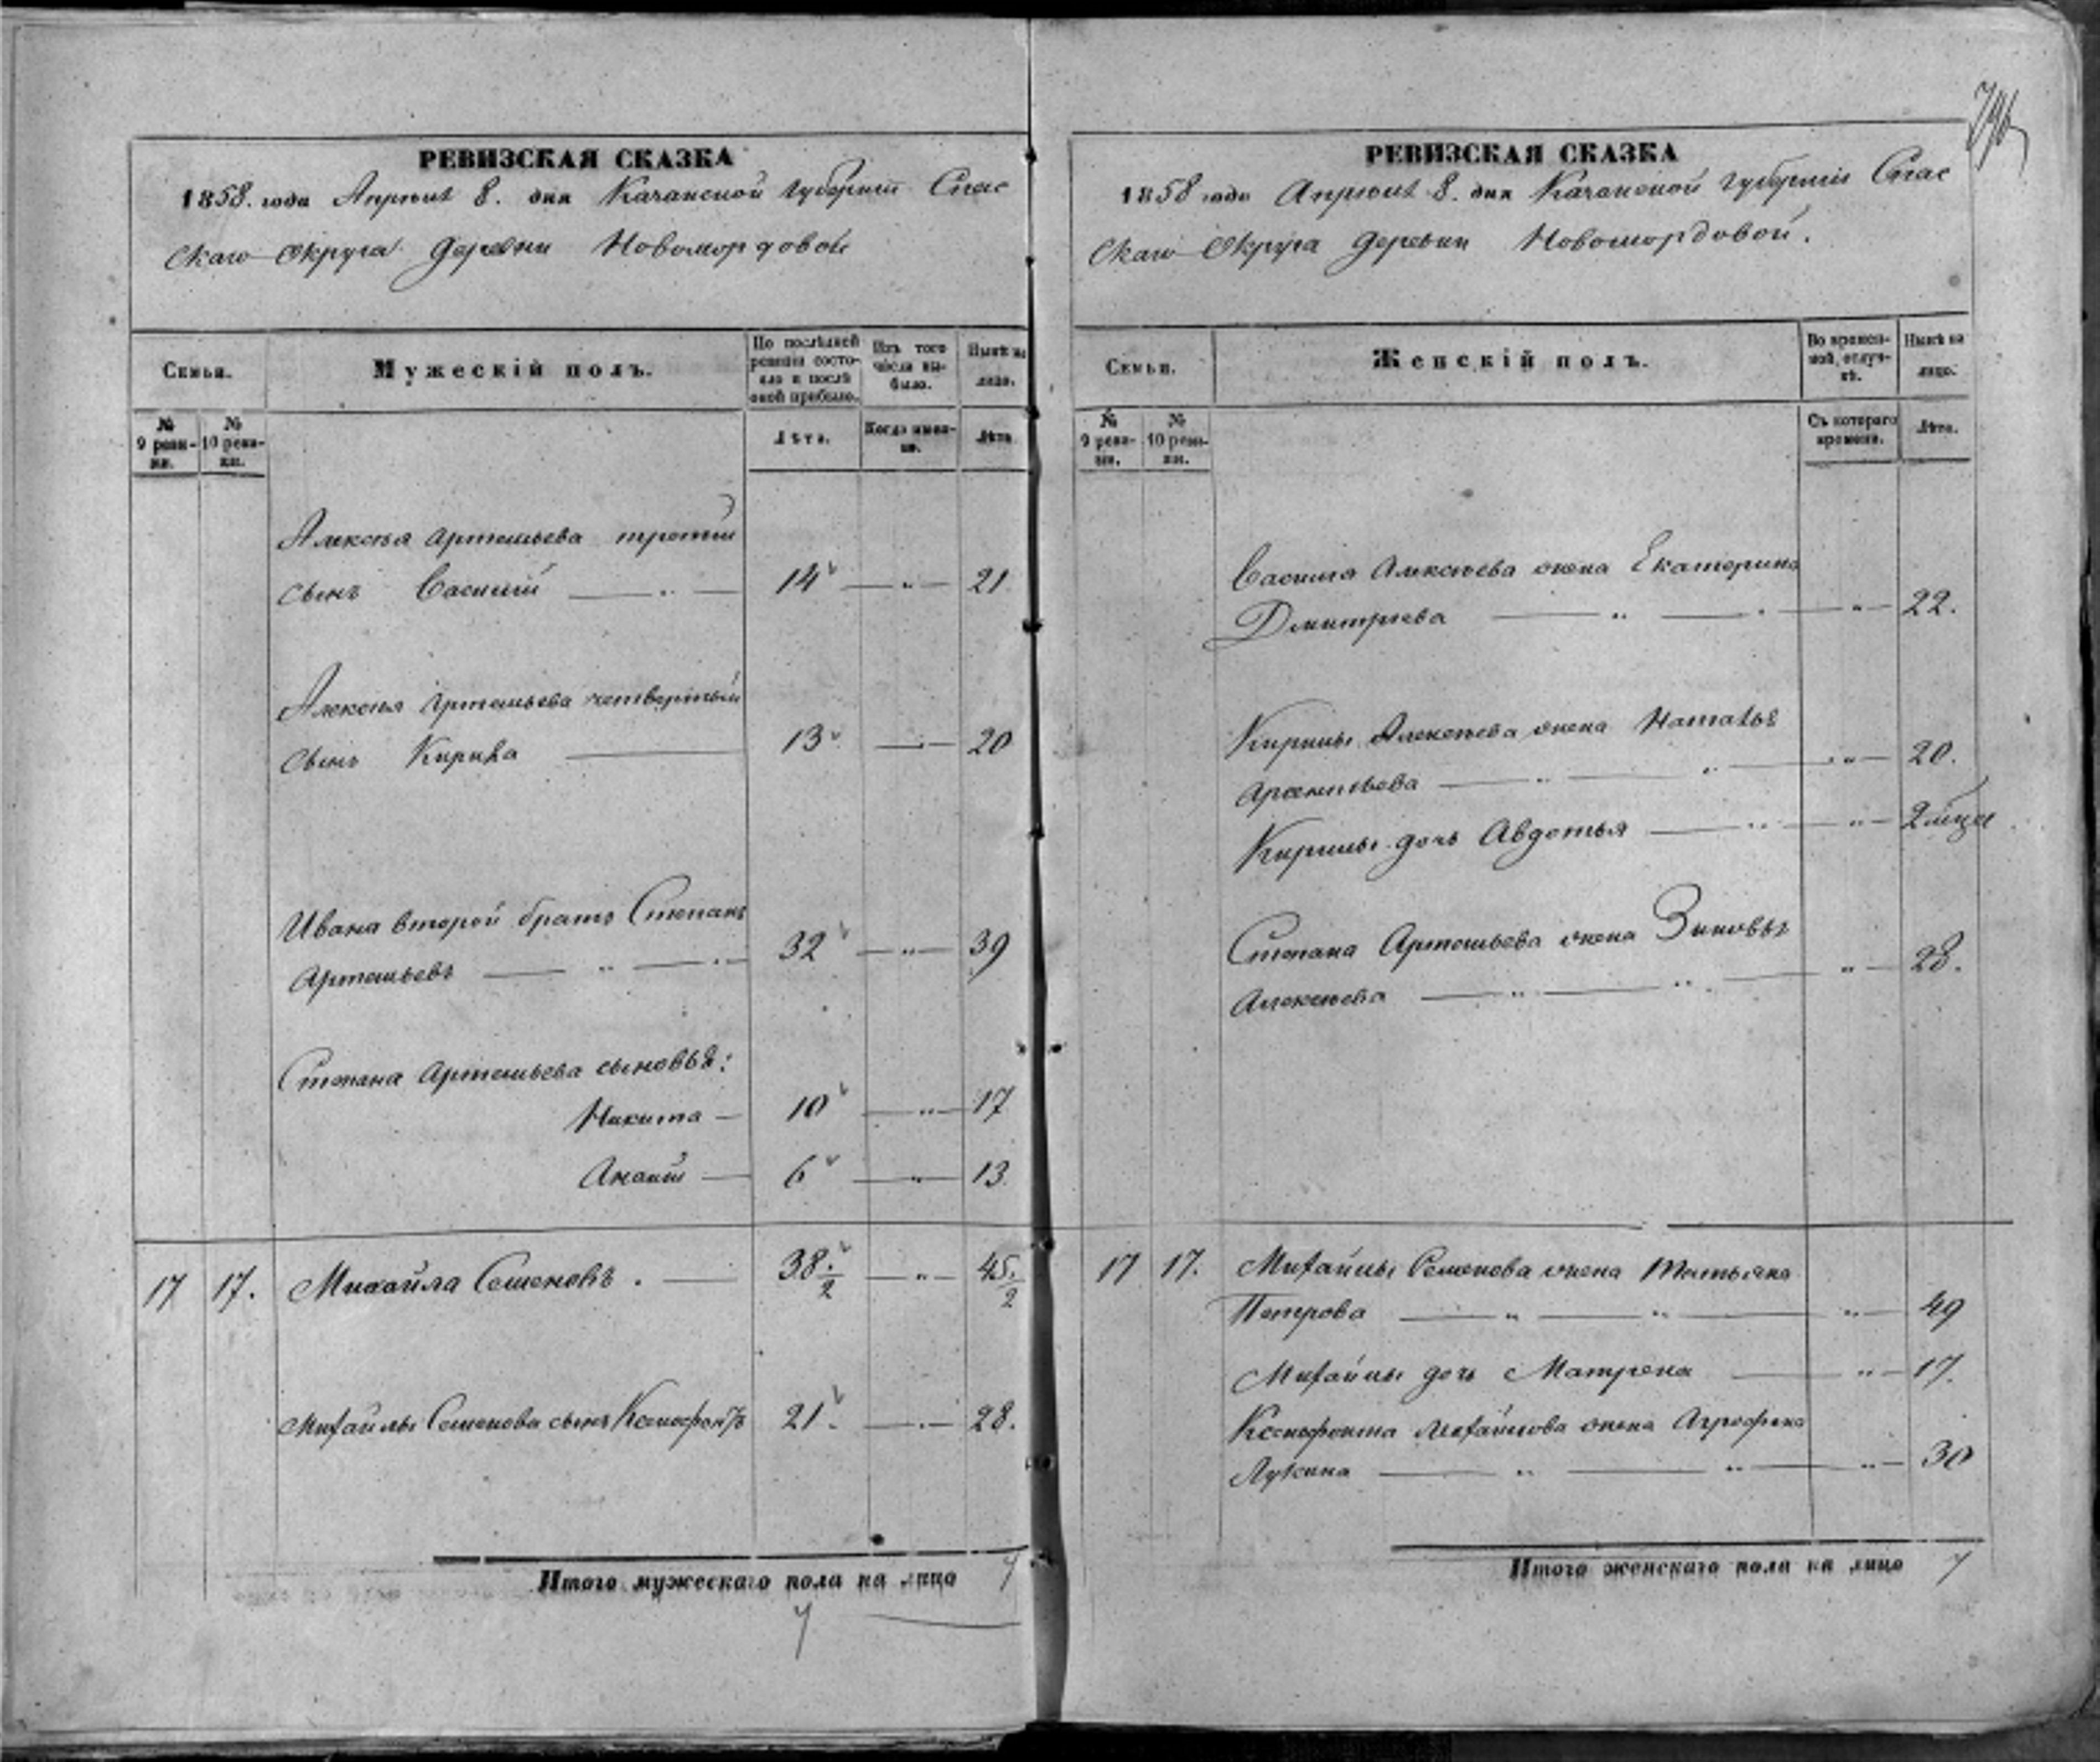 РЕВИЗСКАЯ СКАЗКА
1858. года Апрѣля 8. дня Казанской губерніи Спас
скаго округа деревни Новомордовой
Семьи.
Мужескій полъ.
По послѣдней ревизіи состояло и послѣ оной прибыло.
Изъ того числа выбыло.
Нынѣ на лицо.
№ 9 ревизіи.
№ 10 ревизіи.
Лѣта.
Когда именно.
Лѣта.
Алексѣя Артемьева третій
сынъ Василій — " — 14 — " — 21
Алексѣя Артемьева четвертый
сынъ Кирила — 13 — " — 20
Ивана второй братъ Степанъ
Артемьевъ — " — " — 32 — " — 39
Степана Артемьева сыновья:
Никита — 10 — " — 17
Ананій — 6 — " — 13
17 17. Михайла Семеновъ. — 38./2 — " — 45./2
Михайлы Семенова сынъ Ксенофонтъ 21. — " — 28.
Итого мужескаго пола на лицо 7
7
РЕВИЗСКАЯ СКАЗКА
1858 года Апрѣля 8. дня Казанской губерніи Спас
скаго округа деревни Новомордовой.
Семьи.
Женскій полъ.
Во временной отлучкѣ.
Нынѣ на лицо.
№ 9 ревизіи.
№ 10 ревизіи.
Съ котораго времени.
Лѣта.
Василія Алексѣева жена Екатерина
Дмитріева — " — " — 22.
Кирилы Алексѣева жена Наталья
Арсентьева — " — " — " — 20.
Кирилы дочь Авдотья — " — " — 2 мѣца
Степана Артемьева жена Зиновья
Алексѣева — " — " — " — 28.
17 17. Михайлы Семенова жена Татьяна
Петрова — " — " — " — 49
Михайлы дочь Матрена — " — 17.
Ксенофонта Михайлова жена Агрофена
Лукина — " — " — " — 30
Итого женскаго пола на лицо 7